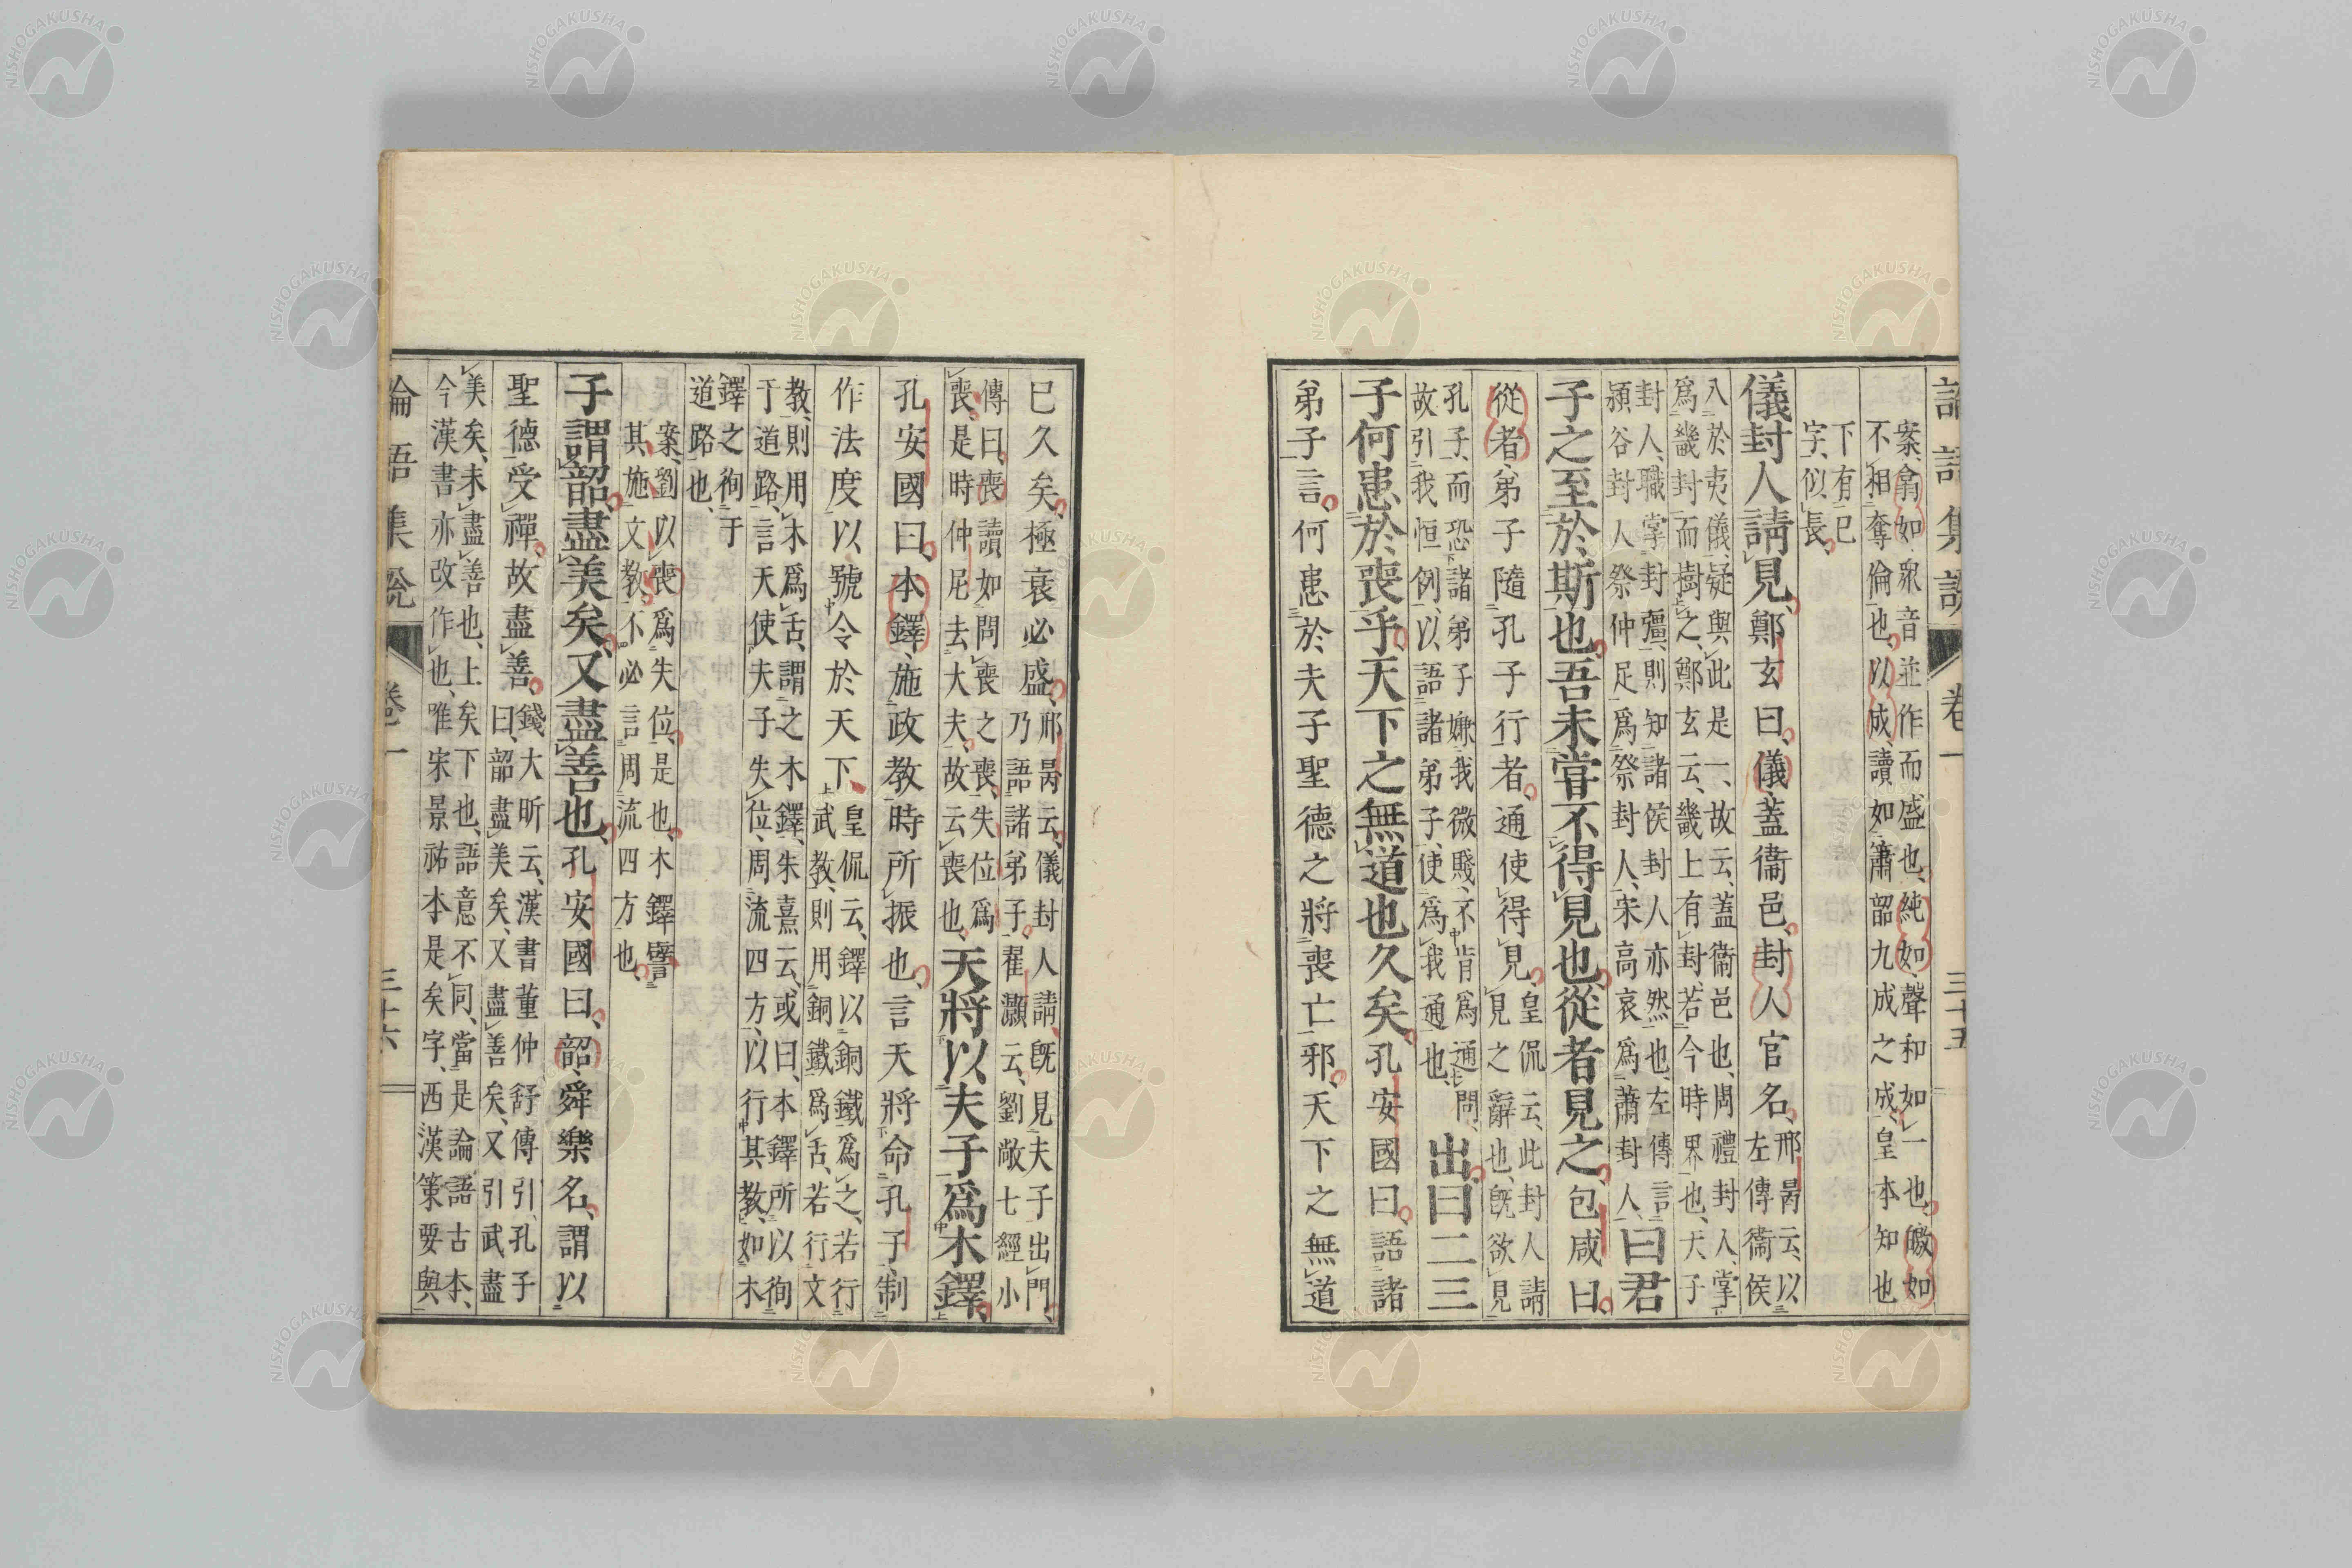 論語集說 卷一 三十五
案、翕如、眾音並作而盛也、純如、聲和如一也、皦如
不相奪倫也、以成、讀如簫韶九成之成、皇本知也
下有已
字、似長、
儀封人請見、鄭玄曰、儀、蓋衞邑、封人官名、邢昺云、以
左傳衞侯
入於夷儀、疑與此是一、故云、蓋衞邑也、周禮封人、掌
爲畿封而樹之、鄭玄云、畿上有封、若今時界也、天子
封人、職掌封疆、則知諸侯封人亦然也、左傳言
潁谷封人祭仲足、爲祭封人、宋高哀爲蕭封人、曰君
子之至於斯也、吾未嘗不得見也、從者見之、包咸曰、
從者、弟子隨孔子行者、通使得見、皇侃云、此封人請
見之辭也、旣欲見
孔子、而恐諸弟子嫌我微賤、不肯爲通問、
故引我恒例、以語諸弟子、使爲我通也、出曰二三
子何患於喪乎、天下之無道也久矣、孔安國曰、語諸
弟子言、何患於夫子聖德之將喪亡邪、天下之無道
已久矣、極衰必盛、邢昺云、儀封人請、旣見夫子出門、
乃語諸弟子、翟灝云、劉敞七經小
傳曰、喪讀如問喪之喪、失位爲
喪、是時仲尼去大夫、故云喪也、天將以夫子爲木鐸、
孔安國曰、木鐸、施政教時所振也、言天將命孔子、制
作法度、以號令於天下、皇侃云、鐸以銅鐵爲之、若行
武教、則用銅鐵爲舌、若行文
教、則用木爲舌、謂之木鐸、朱熹云、或曰、木鐸所以徇
于道路、言天使夫子失位、周流四方、以行其教、如木
鐸之徇于
道路也、
案、劉以喪爲失位、是也、木鐸譬
其施文教、不必言周流四方也、
子謂韶、盡美矣、又盡善也、孔安國曰、韶、舜樂名、謂以
聖德受禪、故盡善、錢大昕云、漢書董仲舒傳引孔子
曰、韶盡美矣、又盡善矣、又引武盡
美矣、未盡善也、上矣下也、語意不同、當是論語古本、
今漢書亦改作也、唯宋景祐本是矣字、西漢策要與
論語集說 卷一 三十六
NISHOGAKUSHA